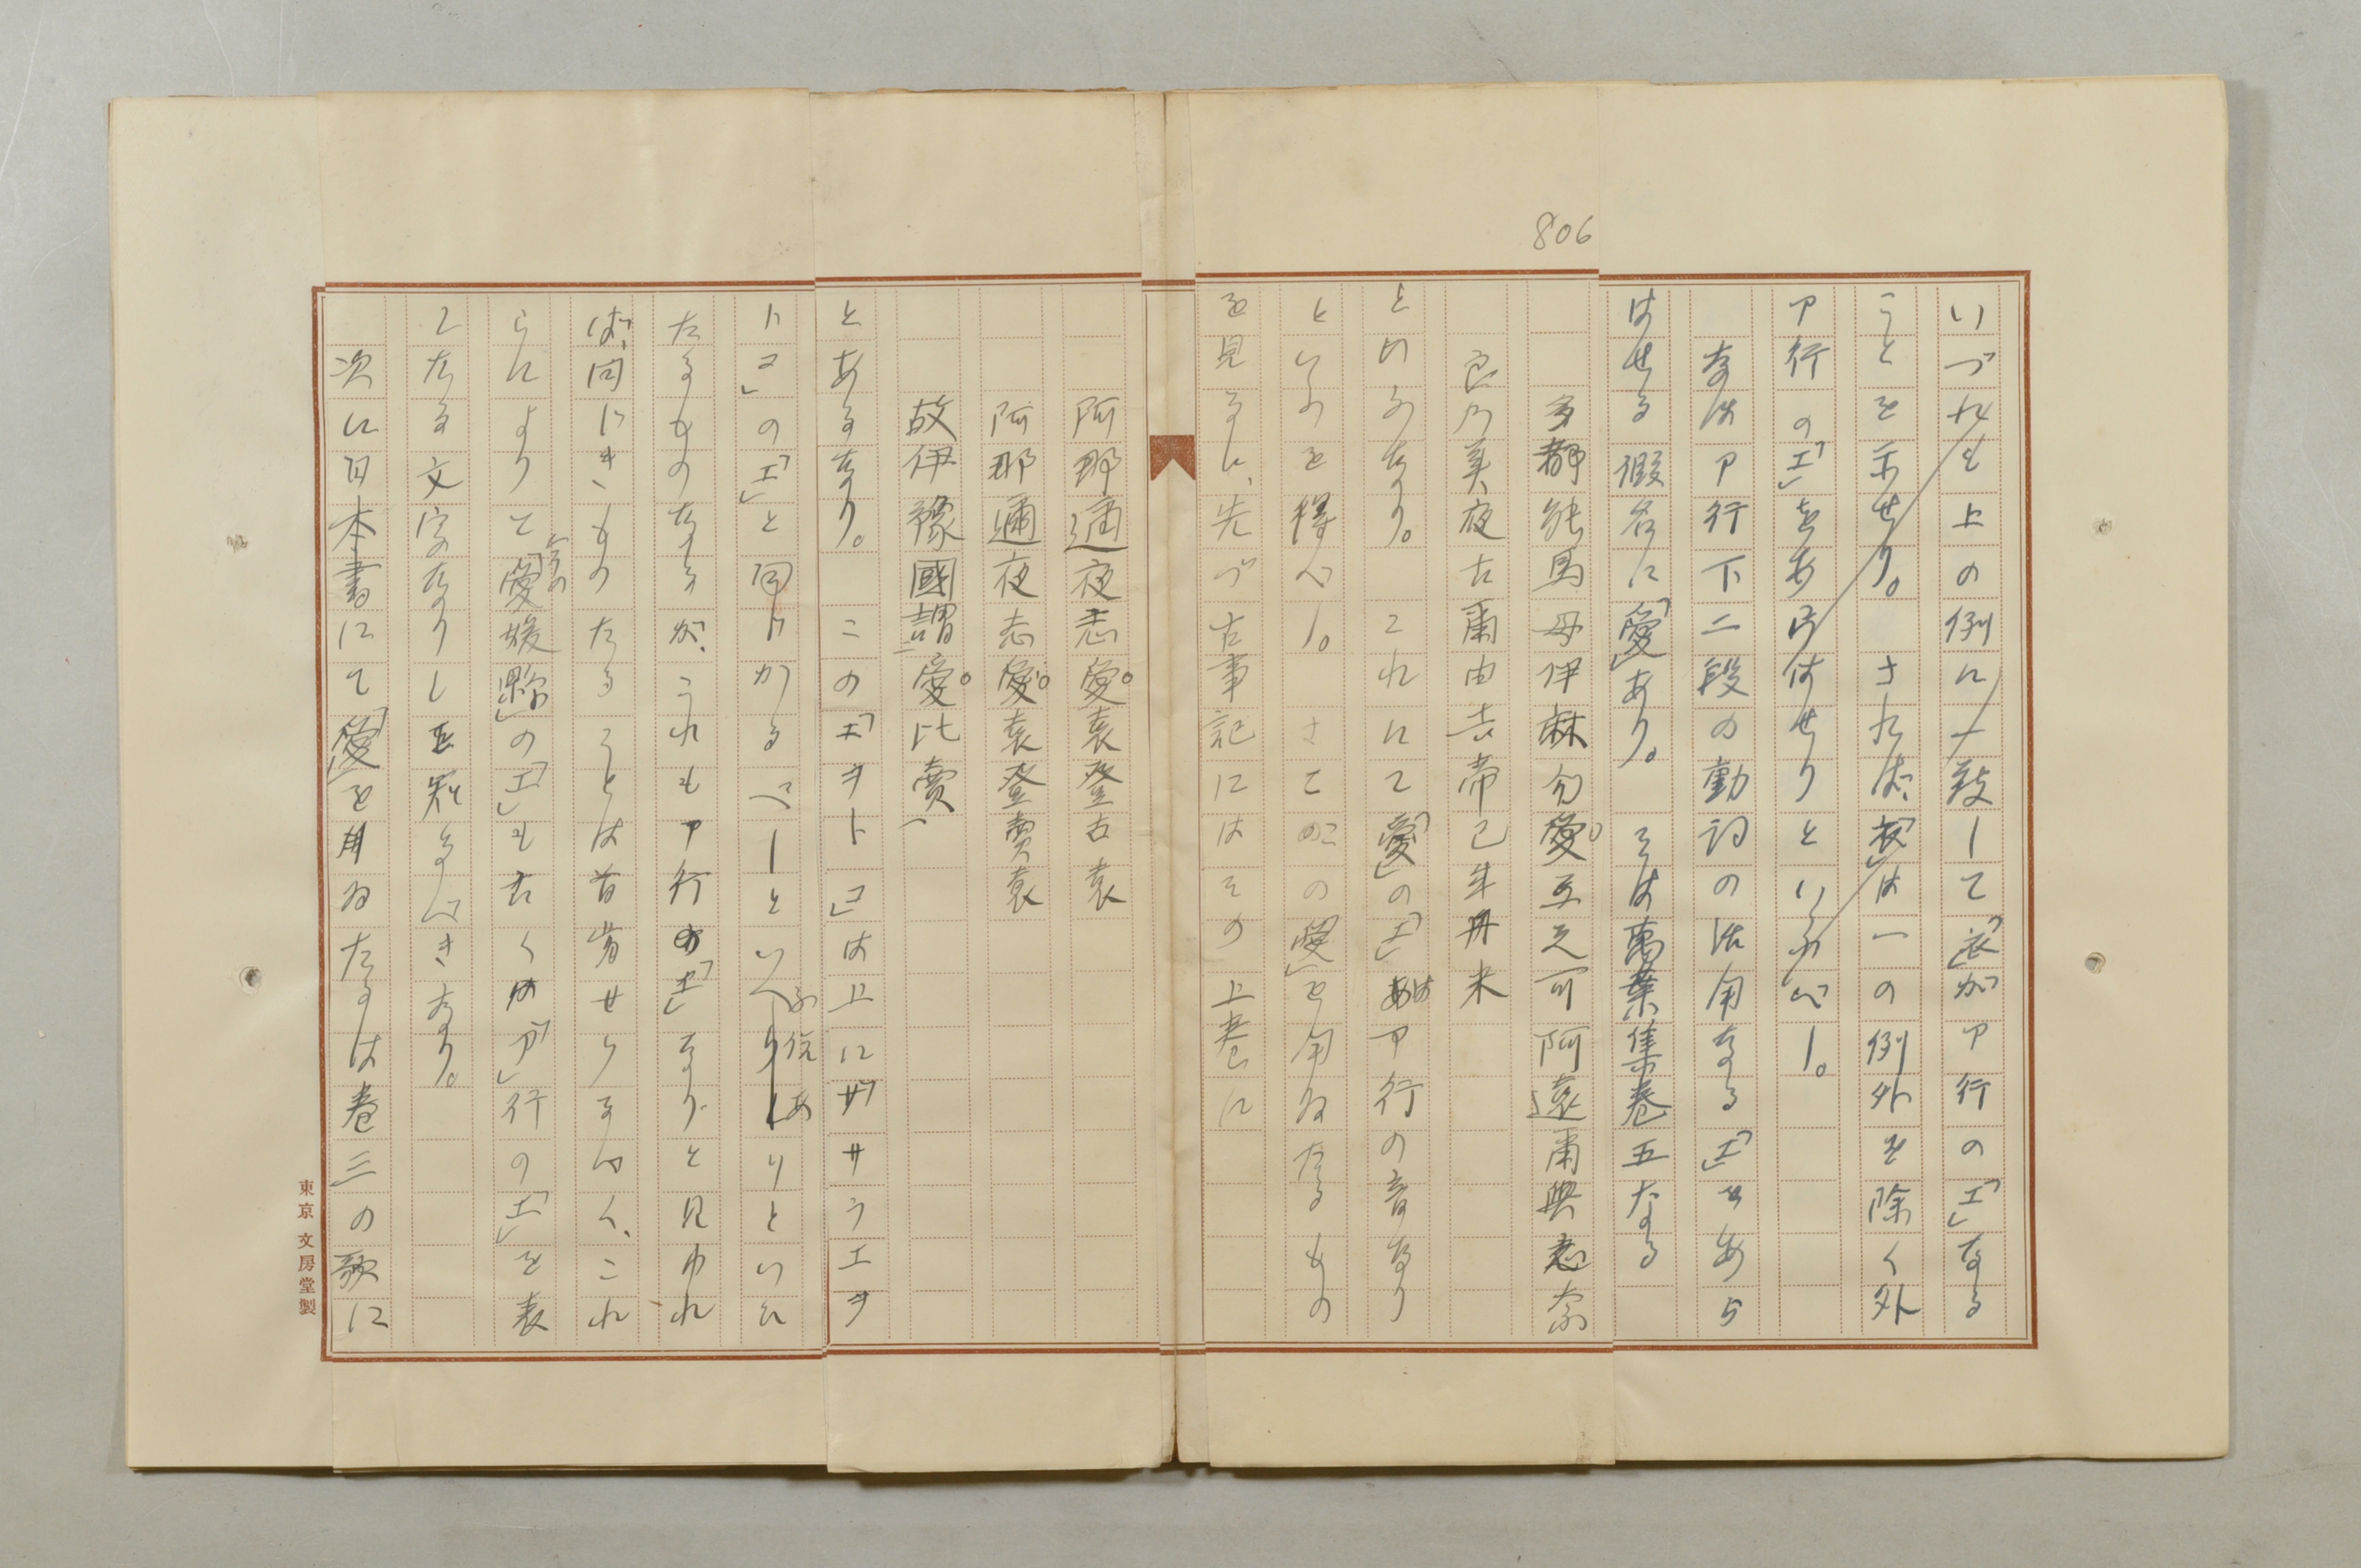 806
いづれも上の例に一致して「衣」がア行の「エ」なる
ことを示せり。されば、「衣」は一の例外を除く外
ア行の「エ」をあらはせりといふべし。
なほア行下二段の動詞の活用なる「エ」をあら
はせる假名に「愛」あり。そは萬葉集卷五なる
多都能馬母伊麻勿愛弖之可阿遠爾與志奈
良乃美夜古爾由吉帝己牟丹米
とめるなり。これにて「愛」の「エ」はア行の音なり
といふを得べし。さてこの「愛」を用ゐたるもの
を見るに、先づ古事記にはその上卷に
阿那邇夜志愛袁登古袁
阿那邇夜志愛袁登賣袁
故伊豫國謂愛比賣
とあるなり。この「エヲトコ」は上に「サザラエヲ
トコ」の「エ」と同じかるべしといふ説ありといひ
たるものなるが、これもア行の「エ」なりと見ゆれ
ば、同じきものたることは首肯せらるべく、これ
らによりて今の「愛媛縣」の「エ」も古くは「ア」行の「エ」を表
したる文字なりし
次に日本書にて「愛」を用ゐたるは卷三の歌に
東京 文房堂製